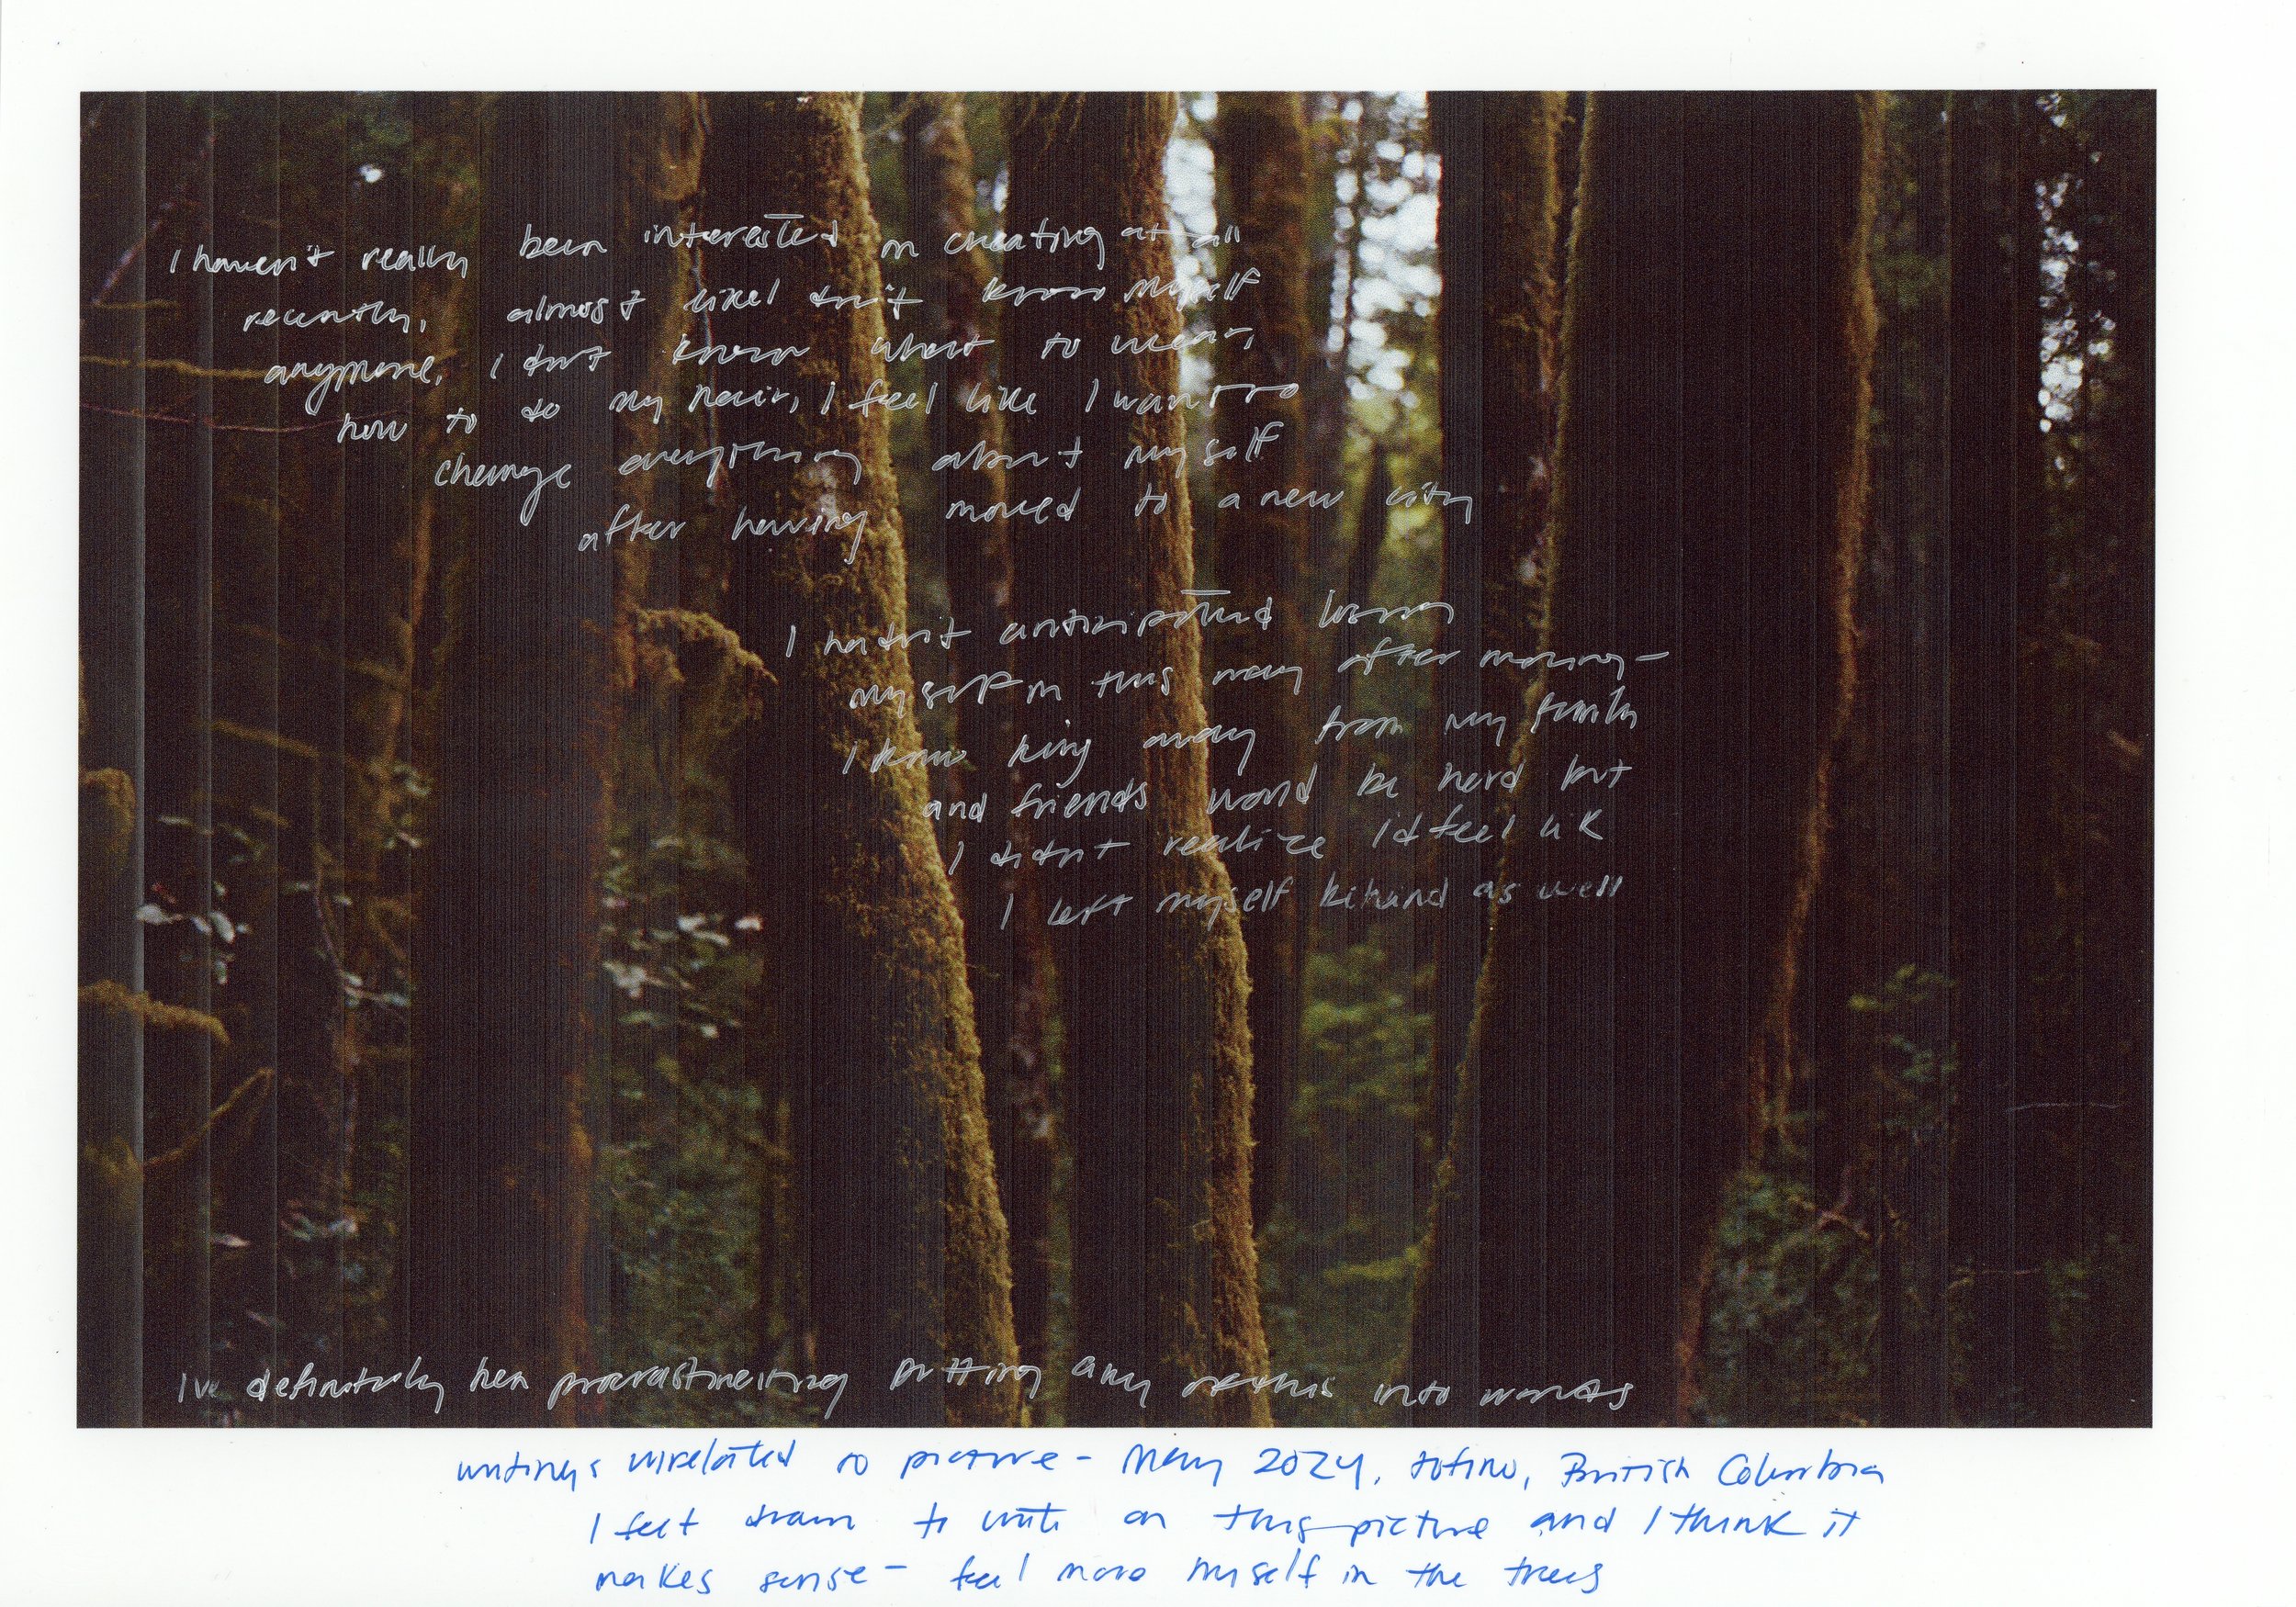 I haven't really been interested in creating at all
recently, almost like I don't know myself
anymore. I don't know what to wear,
how to do my hair, I feel like I want to
change everything about myself
after having moved to a new city
I hadn't anticipated losing
myself in this way after moving-
I knew being away from my family
and friends would be hard but
I didn't realize I'd feel lik
I left myself behind as well
I've definitely been procrastinating putting any of this into words
writings unrelated to picture - May 2024, tofino, British Columbia
I felt drawn to write on this picture and I think it
makes sense - feel more myself in the trees